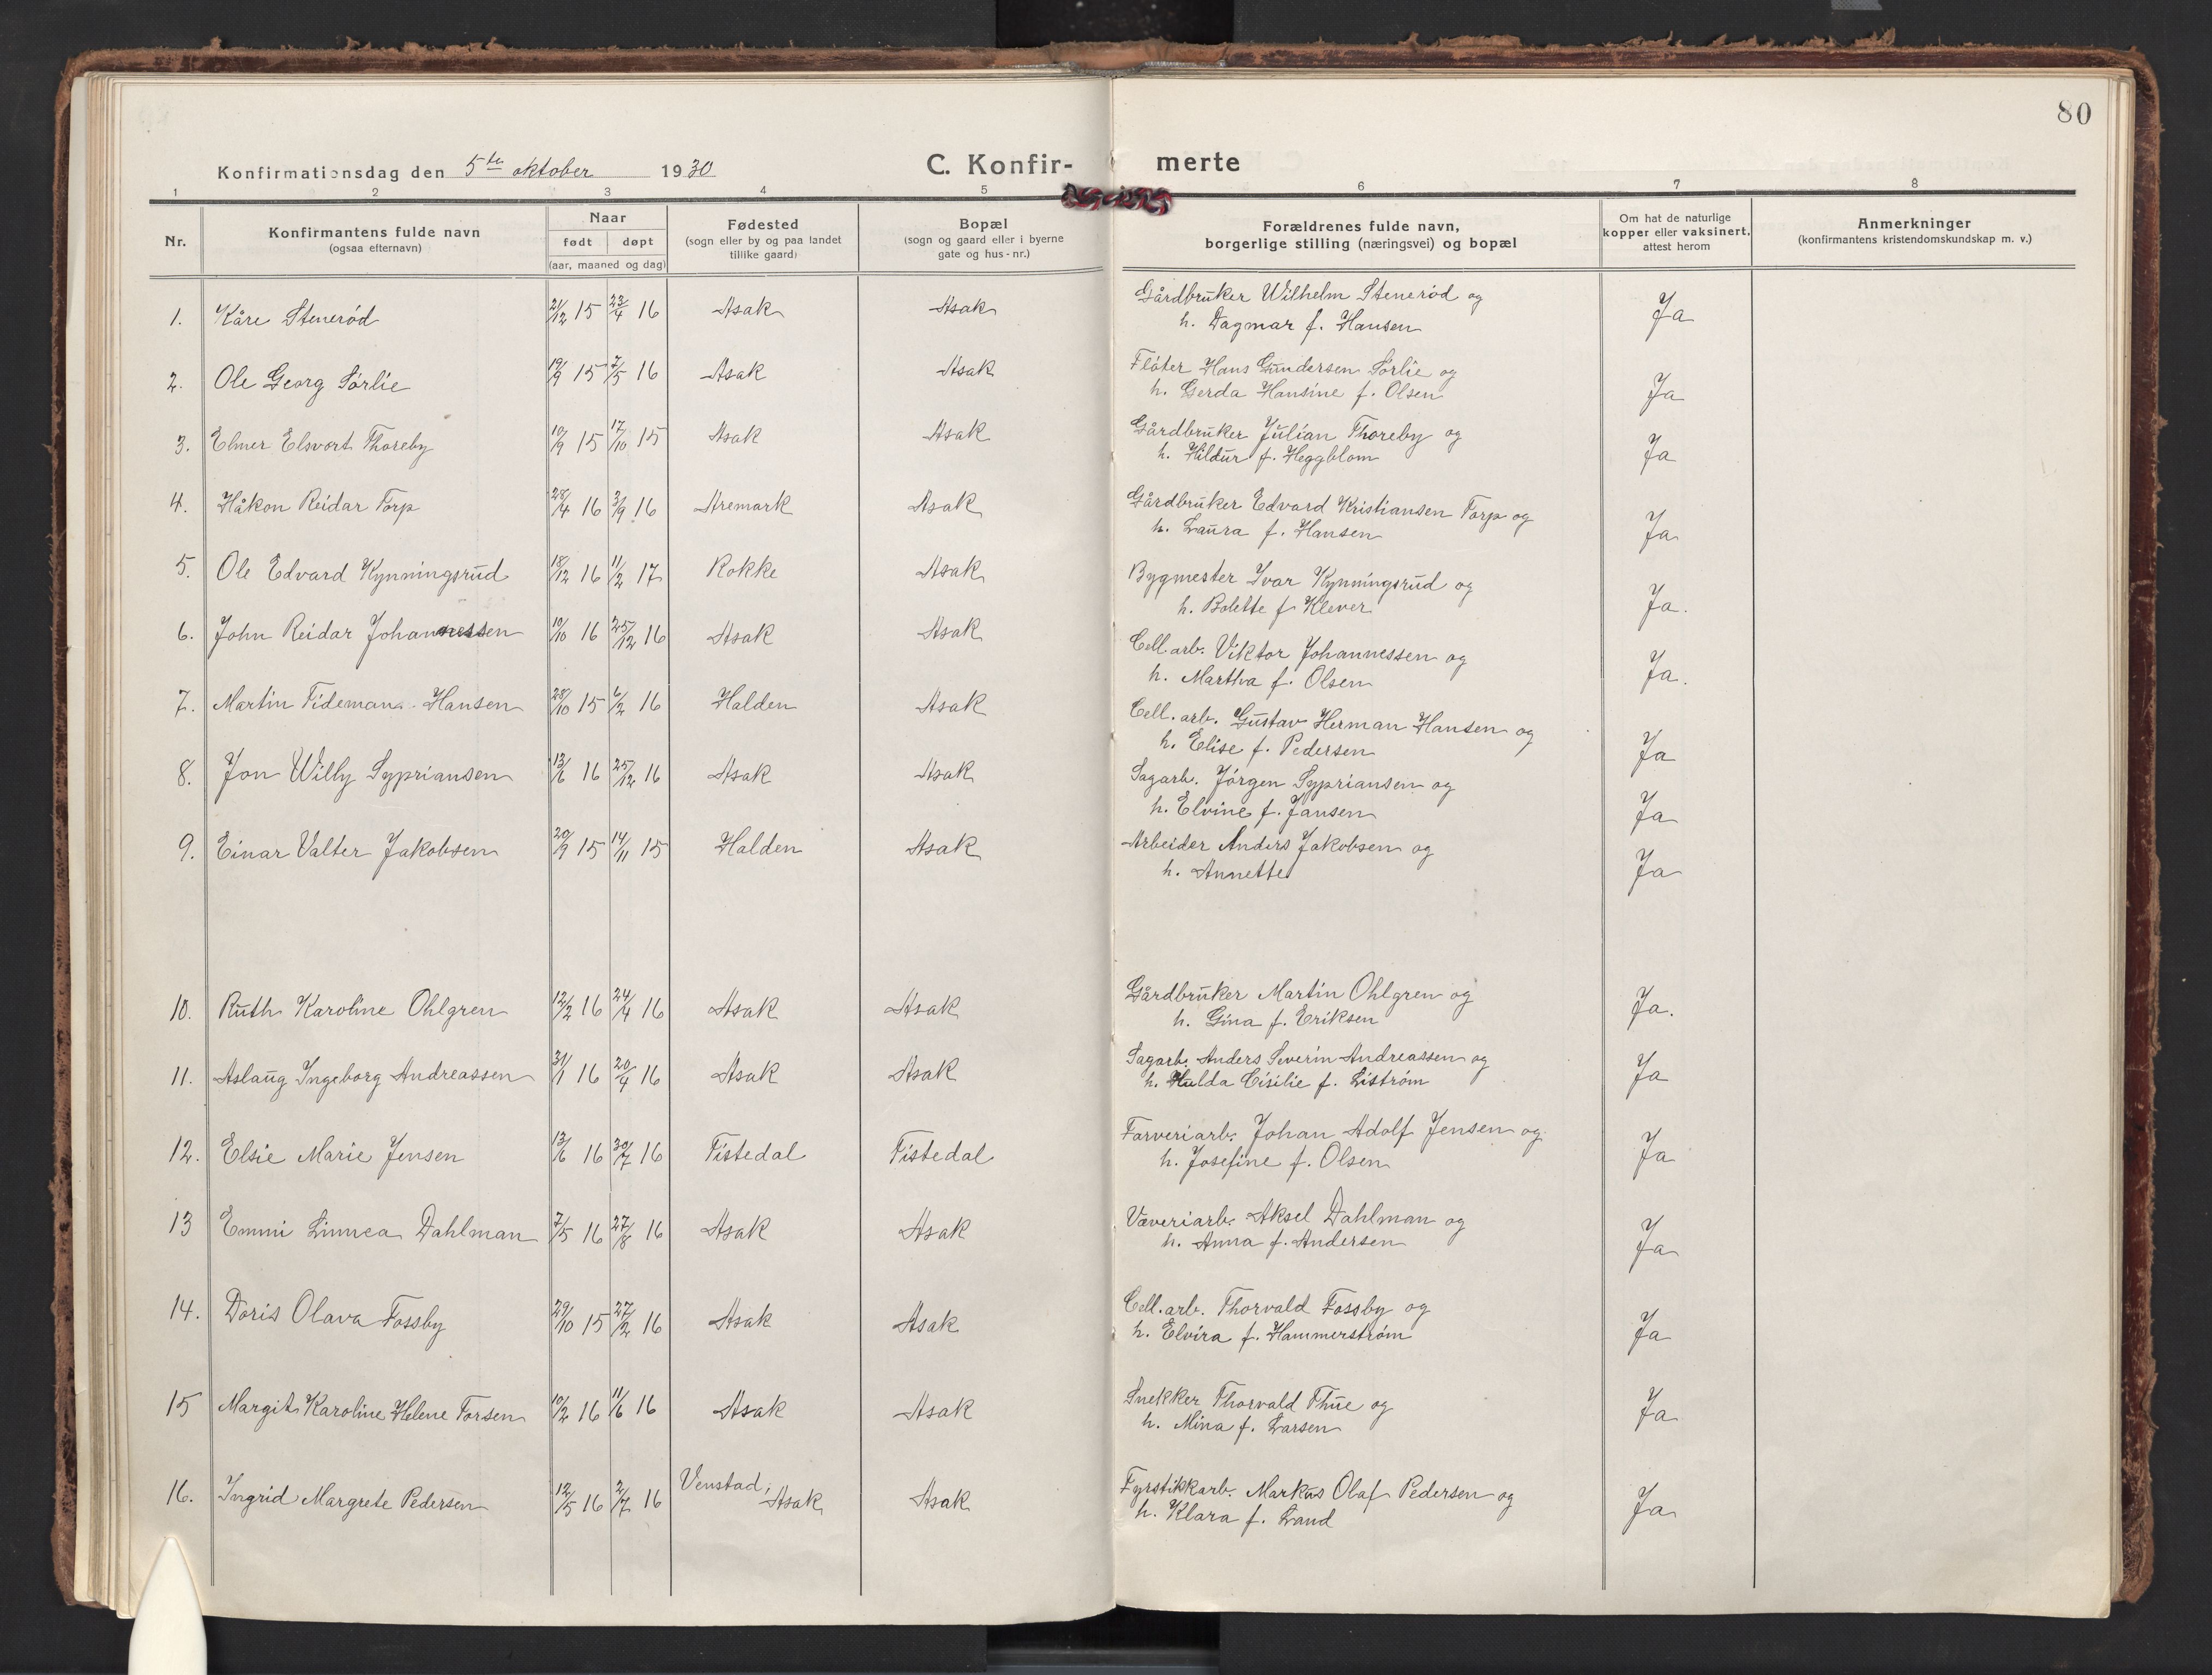 80
Konfirmationsdag den 5te oktober 1930
C. Konfir- merte
1 2 3 4 5 6 7 8
Nr.
Konfirmantens fulde navn
(ogsaa efternavn)
Naar
født døpt
(aar, maaned og dag)
Fødested
(sogn eller by og paa landet
tillike gaard)
Bopæl
(sogn og gaard eller i byerne
gate og hus-nr.)
Forældrenes fulde navn,
borgerlige stilling (næringsvei) og bopæl
Om hat de naturlige
kopper eller vaksinert,
attest herom
Anmerkninger
(konfirmantens kristendomskundskap m. v.)
1. Kåre Stenerød 21/12 15 23/4 16 Asak Asak Gårdbruker Wilhelm Stenerød og Ja
h. Dagmar f. Hansen
2. Ole Georg Sørlie 19/9 15 7/5 16 Asak Asak Fløter Hans Gundersen Sørlie og
h. Gerda Hansine f. Olsen Ja
3. Elmer Elsvort Thoreby 10/9 15 17/10 15 Asak Asak Gårdbruker Julian Thoreby og
h. Hildur f. Heggblom Ja
4. Håkon Reidar Torp 28/4 16 3/9 16 Aremark Asak Gårdbruker Edvard Kristiansen Torp og
h. Laura f. Hansen Ja
5. Ole Edvard Kynningsrud 18/12 16 11/2 17 Rokke Asak Bygmester Ivar Kynningsrud og
h. Bolette f. Klever Ja.
6. John Reidar Johannessen 10/10 16 25/12 16 Asak Asak Cell. arb. Viktor Johannessen og
h. Martha f. Olsen Ja.
7. Martin Tideman Hansen 28/10 15 6/2 16 Halden Asak Cell. arb. Gustav Herman Hansen og
h. Elise f. Pedersen Ja
8. Jon Willy Sypriansen 13/6 16 25/12 16 Asak Asak Sagarb. Jørgen Sypriansen og
h. Elvine f. Jansen Ja
9. Einar Valter Jakobsen 20/9 15 14/11 15 Halden Asak Arbeider Anders Jakobsen og
h. Annette Ja
10. Ruth Karoline Ohlgren 12/2 16 24/4 16 Asak Asak Gårdbruker Martin Ohlgren og Ja.
h. Gina f. Eriksen
11. Aslaug Ingeborg Andreassen 31/1 16 20/4 16 Asak Asak Sagarb. Anders Severin Andreassen og
h. Hulda Cisilie f. Liström Ja
12. Elsie Marie Jensen 13/6 16 30/7 16 Tistedal Tistedal Farveriarb. Johan Adolf Jensen og
h. Josefine f. Olsen Ja
13 Emmi Linnea Dahlman 7/5 16 27/8 16 Asak Asak Væveriarb. Aksel Dahlman og
h. Anna f. Andersen Ja
14. Doris Olava Fossby 29/10 15 27/2 16 Asak Asak Cell. arb. Thorvald Fossby og
h. Elvira f. Hammerström Ja
15 Margit Karoline Helene Torsen 10/2 16 11/6 16 Asak Asak Snekker Thorvald Thue og Ja
h. Mina f. Larsen
16. Ingrid Margrete Pedersen 12/5 16 2/7 16 Venstad, Asak Asak Fyrstikkarb. Markus Olaf Pedersen og
h. Klara f. Land Ja